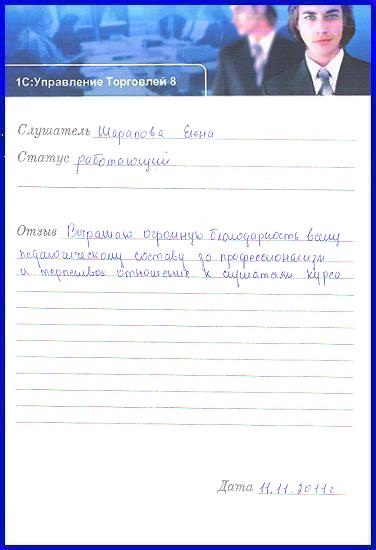 1С:Управление Торговлей 8
Слушатель Шарапова Елена
Статус работающий
Отзыв Выражаю огромную благодарность всему
педагогическому составу за профессионализм
и терпеливое отношение к слушателям курса
Дата 11.11.2011г